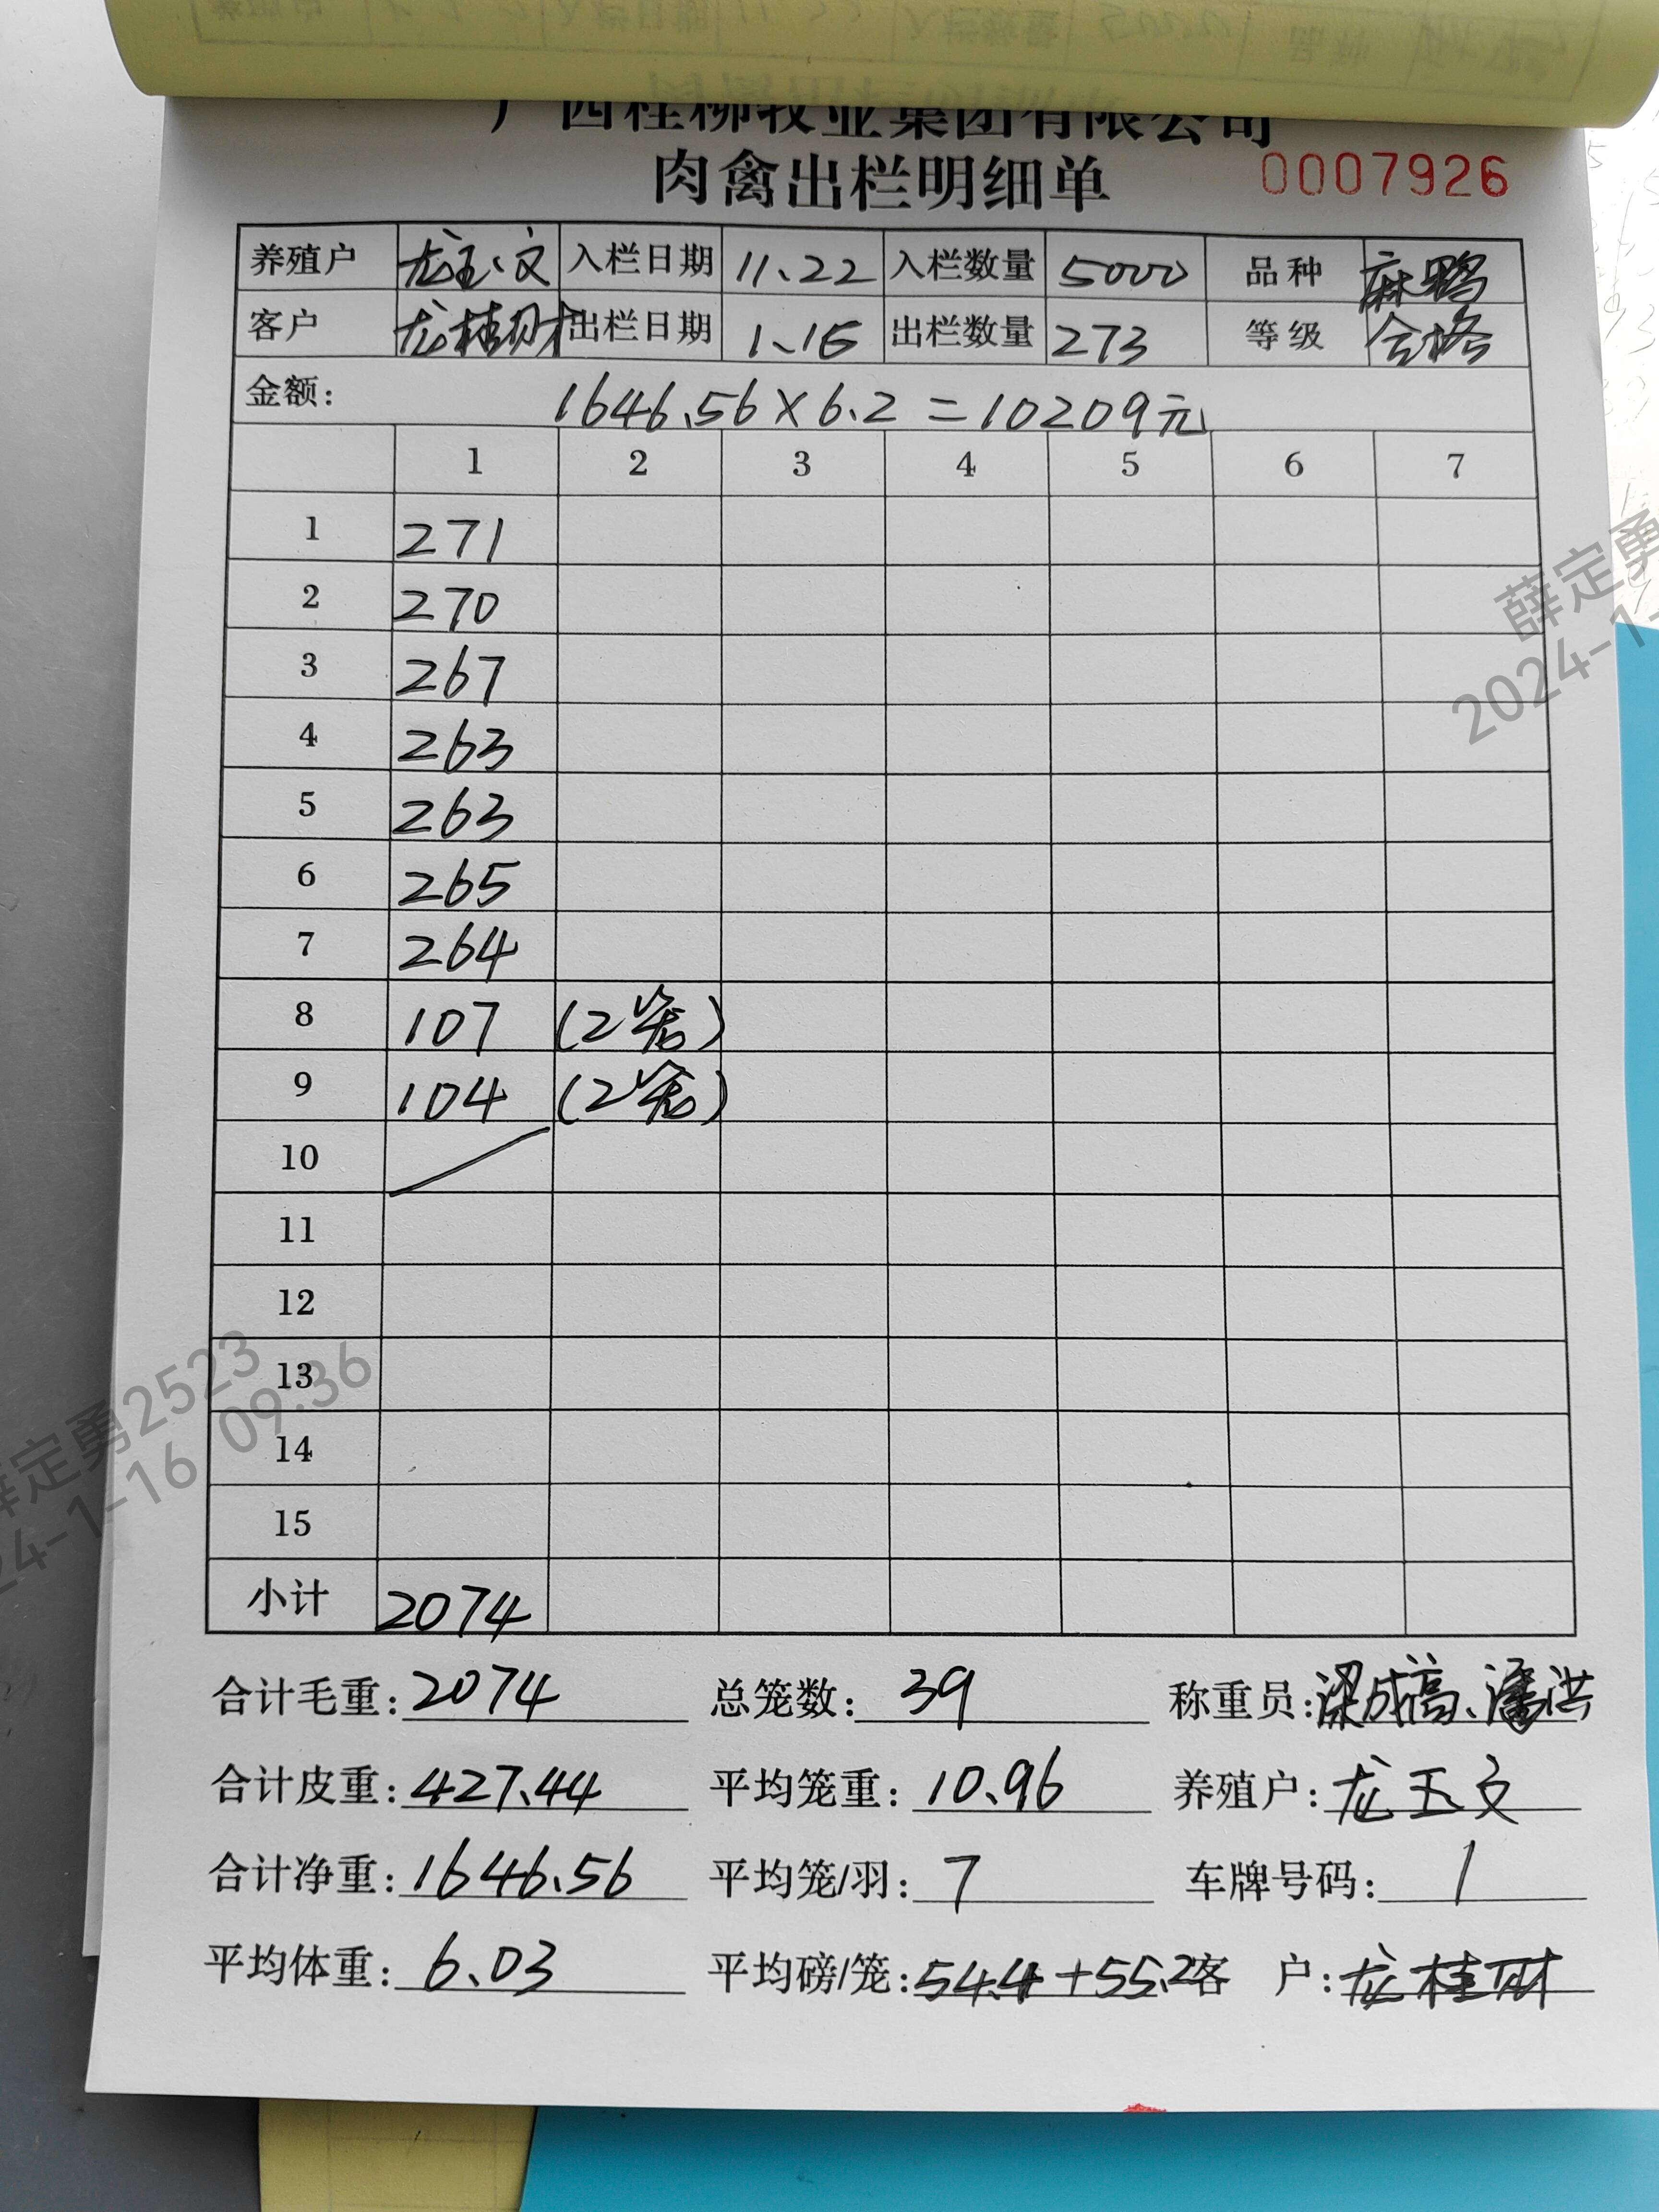 广西桂柳牧业集团有限公司
肉禽出栏明细单 0007926
养殖户 龙玉文 入栏日期 11.22 入栏数量 5000 品种 麻鸭
客户 龙桂财 出栏日期 1.16 出栏数量 273 等级 合格
金额: 1646.56×6.2=10209元
1 2 3 4 5 6 7
1 271
2 270
3 267
4 263
5 263
6 265
7 264
8 107 (2笼)
9 104 (2笼)
10
11
12
13
14
15
小计 2074
合计毛重: 2074 总笼数: 39 称重员: 梁成高、潘洪
合计皮重: 427.44 平均笼重: 10.96 养殖户: 龙玉文
合计净重: 1646.56 平均笼/羽: 7 车牌号码: 1
平均体重: 6.03 平均磅/笼: 54.4+55.2 客户: 龙桂财
薛定勇
2024-1-
薛定勇2523
24-1-16 09:36